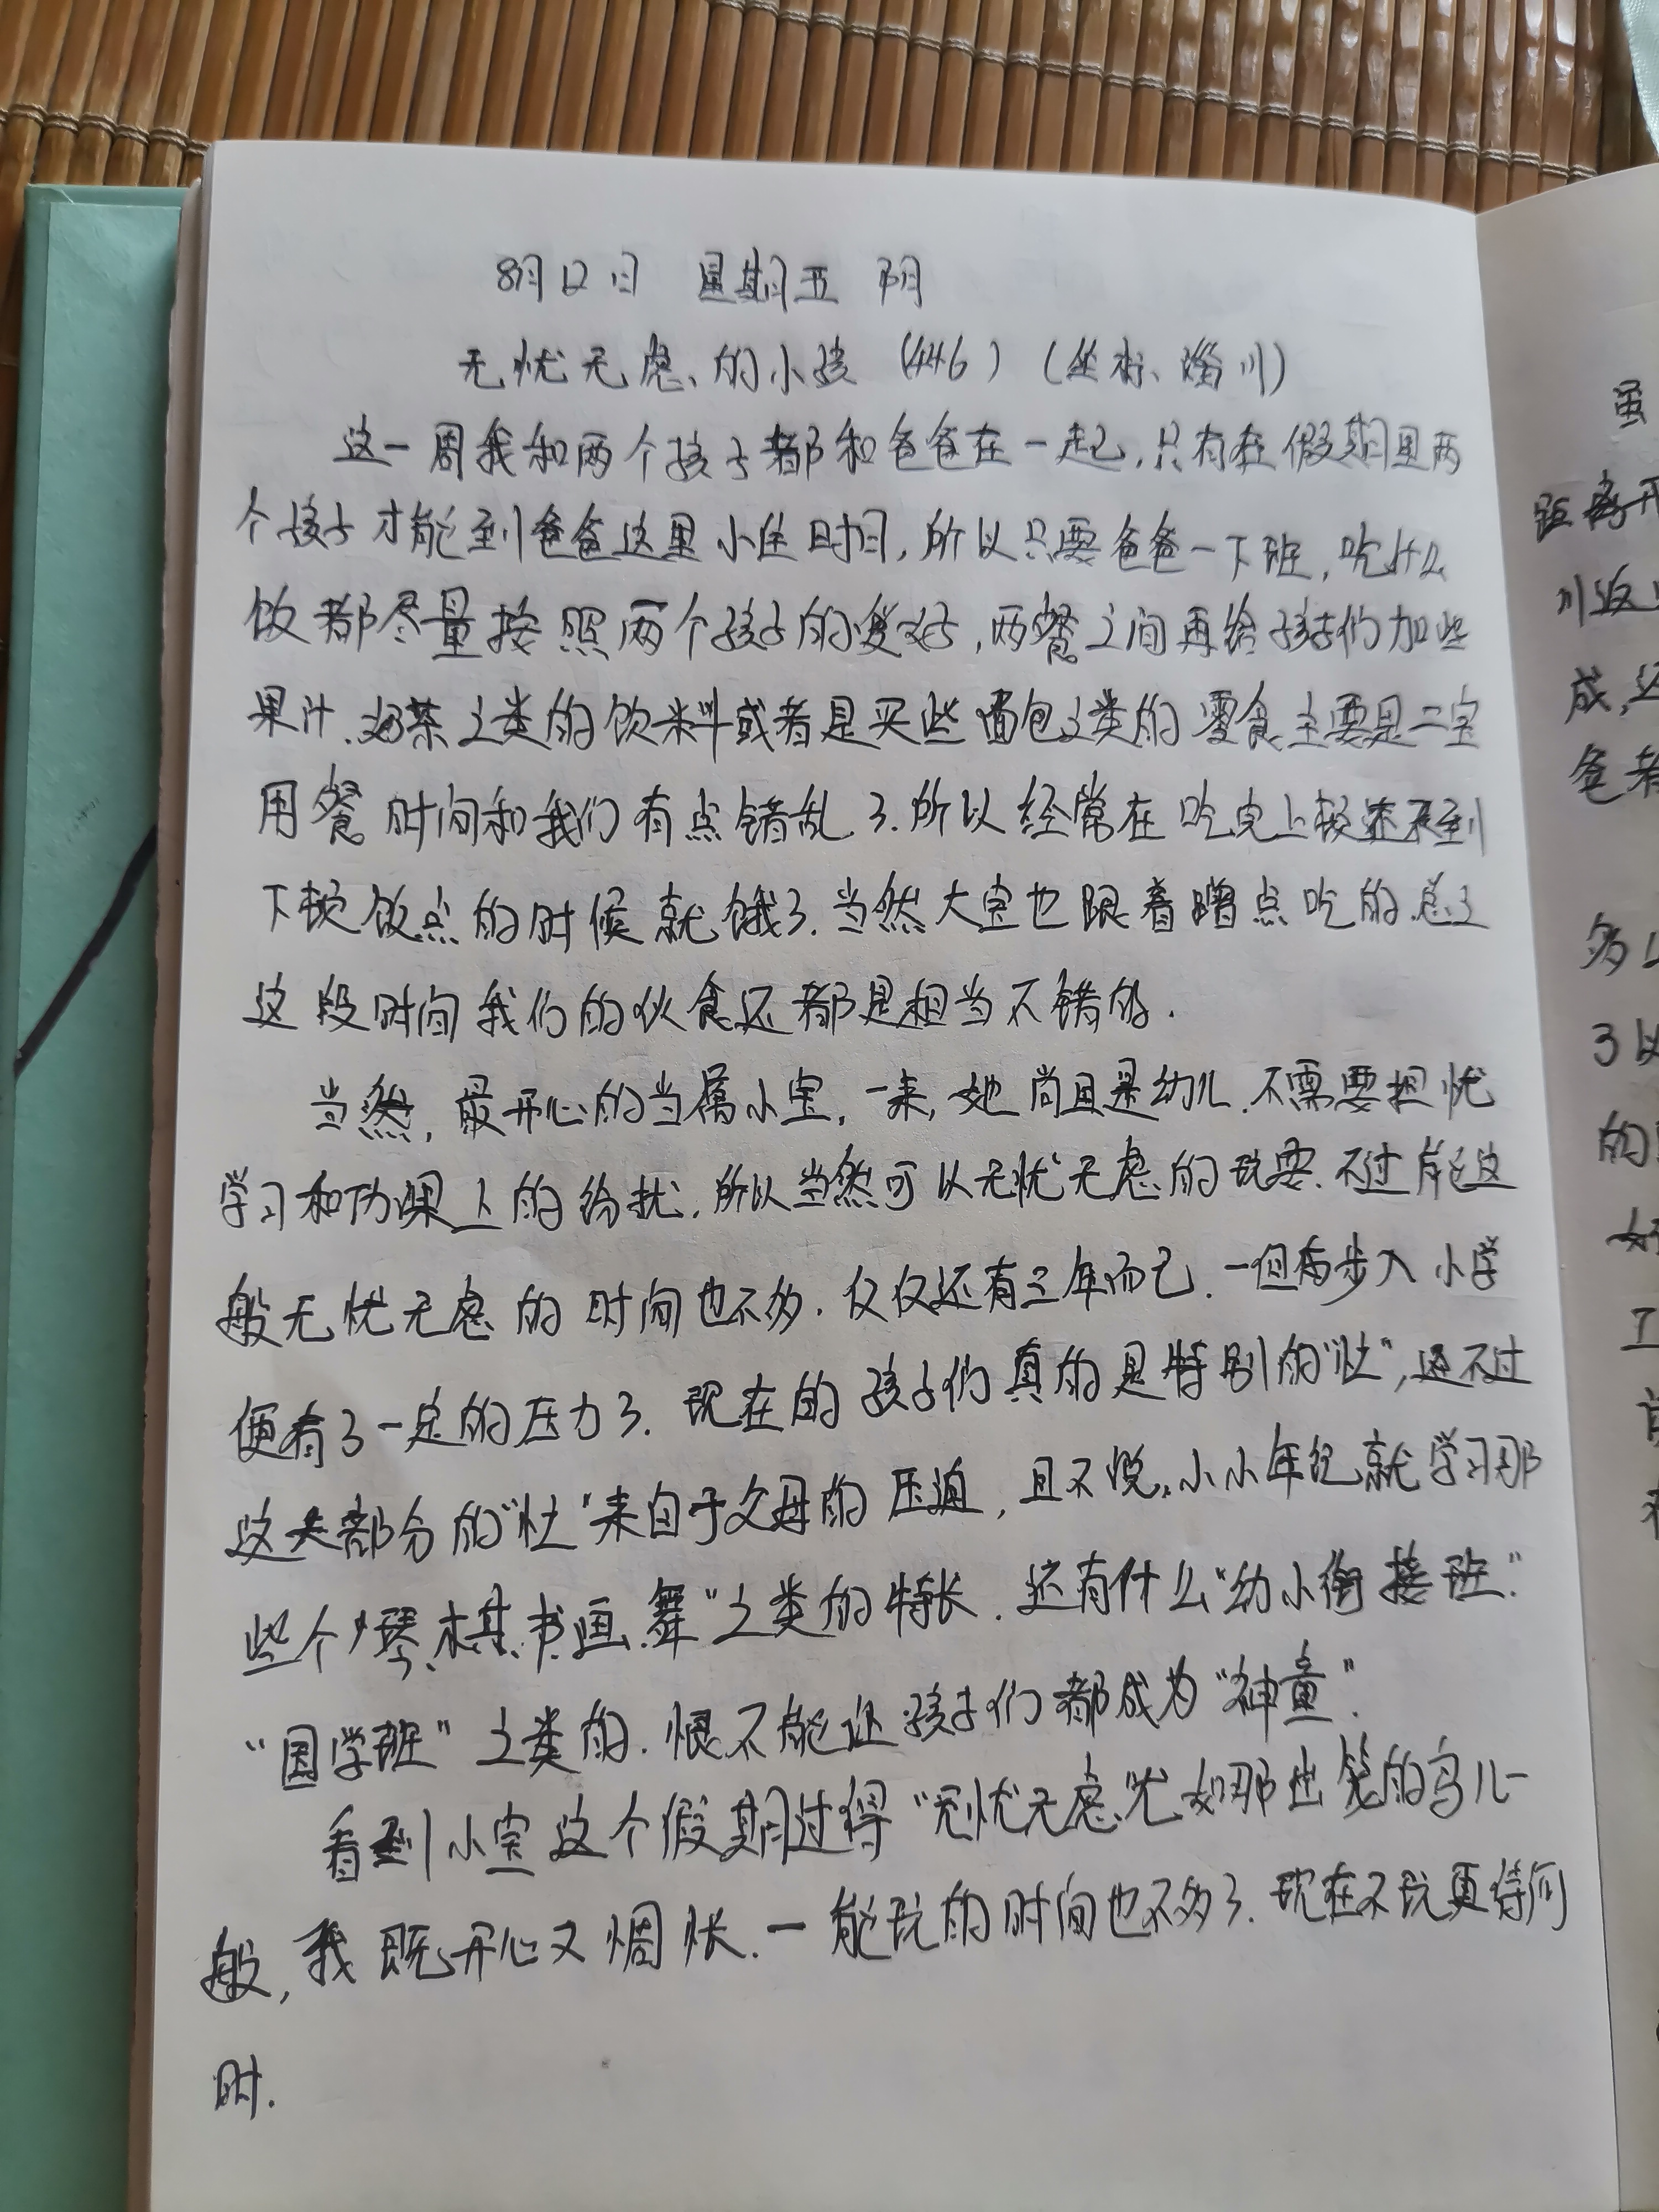 8月12日 星期五 阴
无忧无虑的小孩 (446) (坐标、淄川)
这一周我和两个孩子都和爸爸在一起,只有在假期里两
个孩子才能到爸爸这里小住时日,所以只要爸爸一下班,吃什么
饭都尽量按照两个孩子的爱好,两餐之间再给孩子们加些
果汁、奶茶之类的饮料或者是买些面包之类的零食主要是二宝
用餐时间和我们有点错乱了.所以经常在吃完上顿还不到
下顿饭点的时候就饿了.当然大宝也跟着蹭点吃的.总之
这段时间我们的伙食还都是相当不错的.
当然,最开心的当属小宝,一来,她尚且是幼儿.不需要担忧
学习和功课上的纷扰,所以当然可以无忧无虑的玩耍.不过能这
般无忧无虑的时间也不多.仅仅还有三年而已.一但步入小学
便有了一定的压力了.现在的孩子们真的是特别的“忙”,还不过
这大部分的“忙”来自于父母的压迫,且不说.小小年纪就学习那
些个“琴.棋.书.画.舞”之类的特长.还有什么“幼小衔接班.”
“国学班”之类的.恨不能让孩子们都成为“神童”.
看到小宝这个假期过得“无忧无虑”尤如那出笼的鸟儿一
般,我既开心又惆怅.一能玩的时间也不多了.现在不玩更待何
时.
虽
距离开
川返
成,还
爸
多
3以
的
好
工